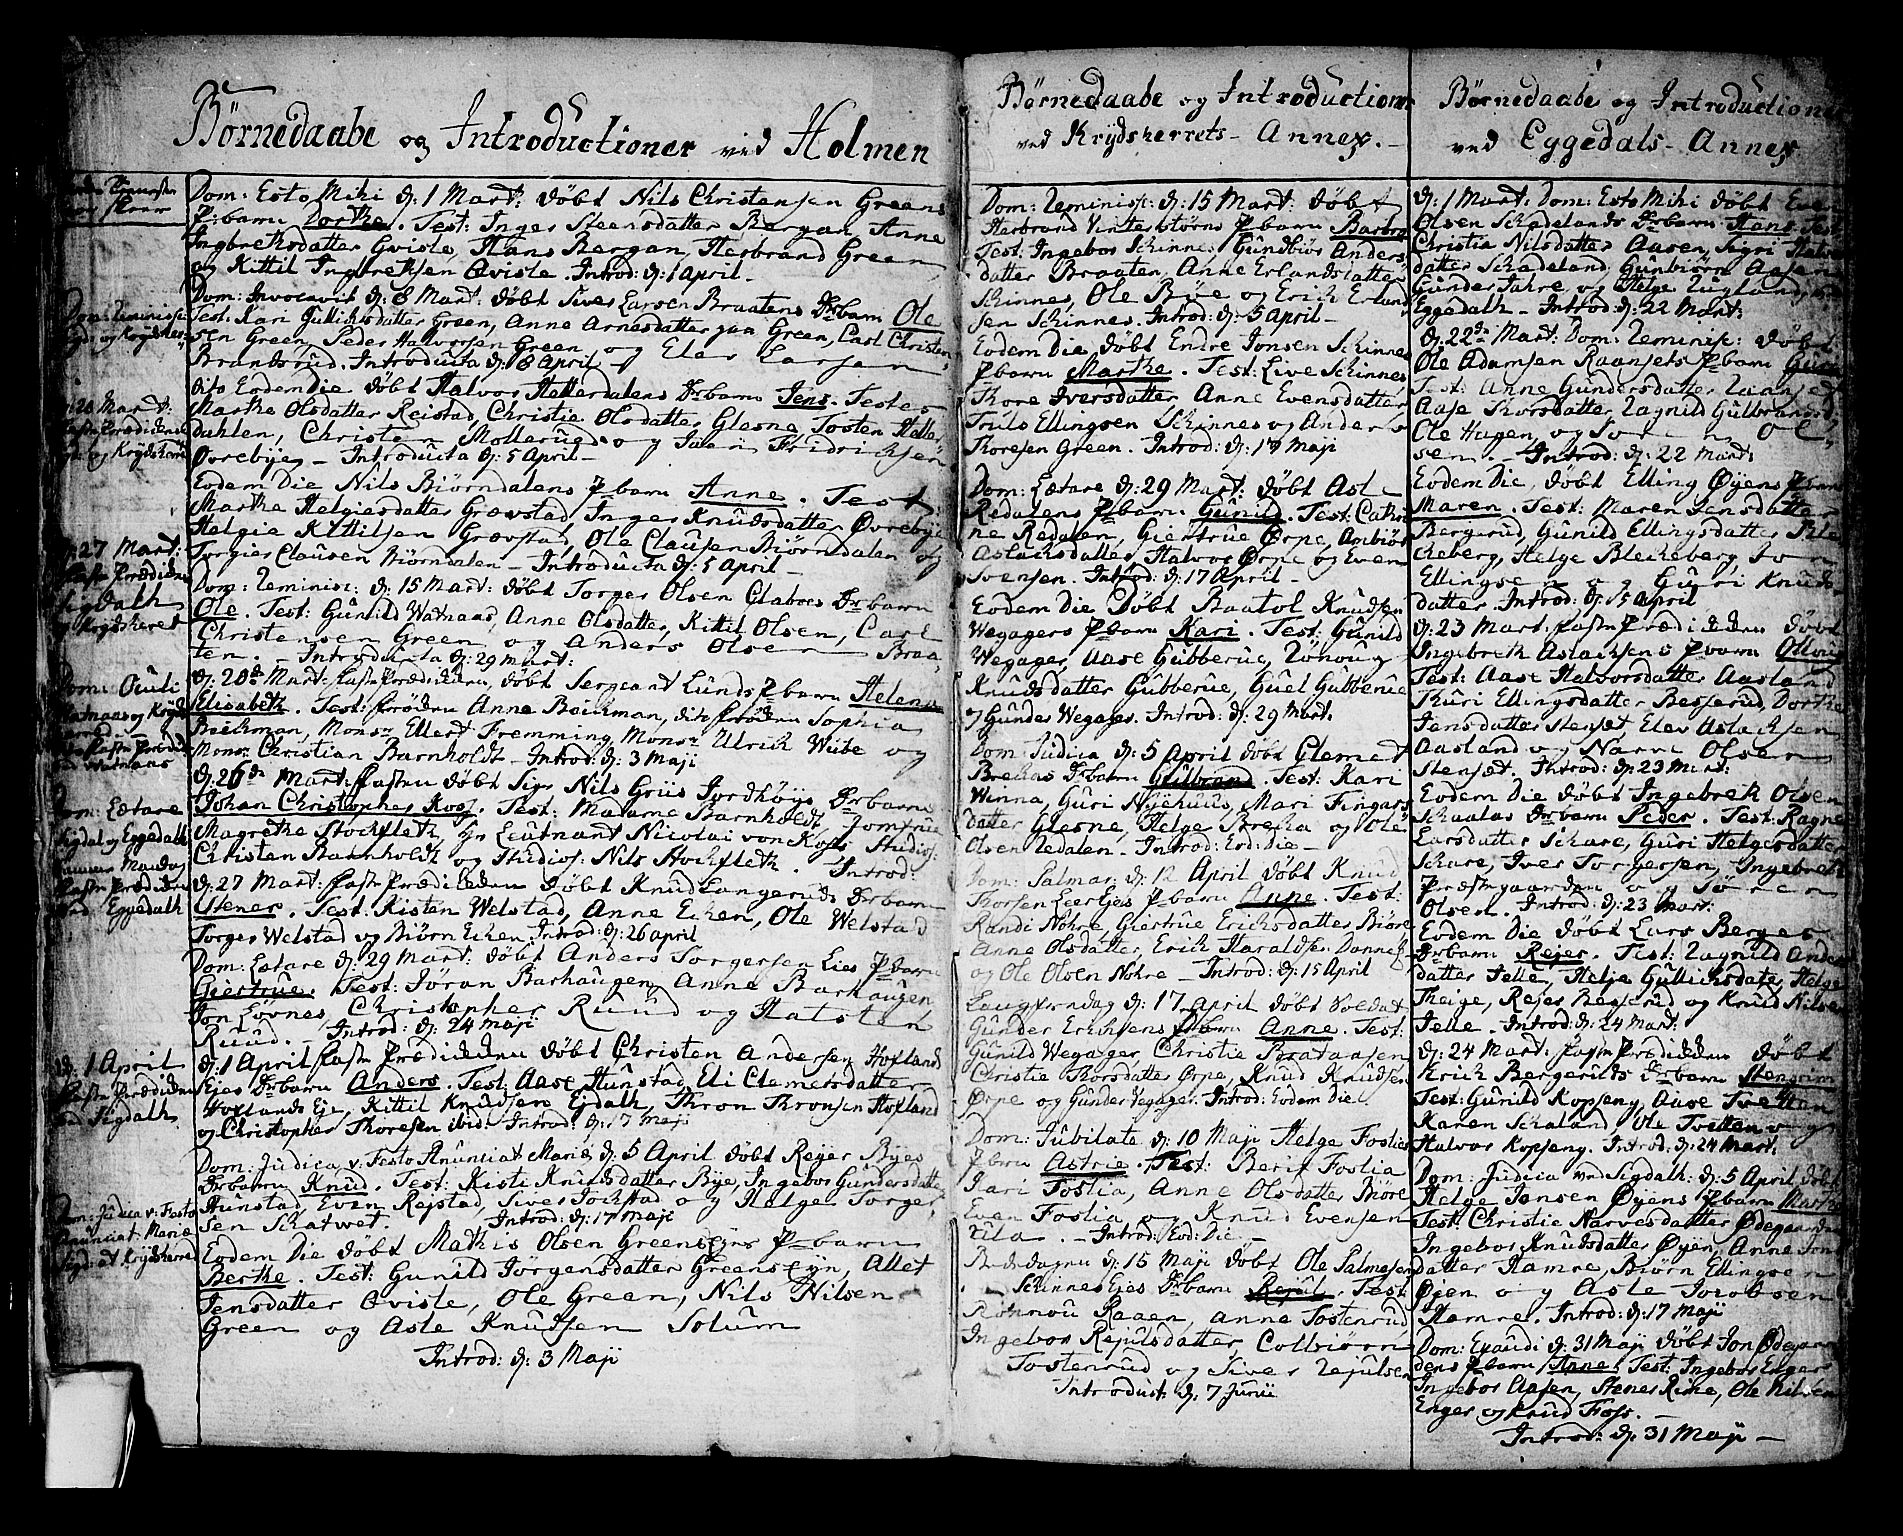 Børnedaabe og Introductioner ved Holmen
Dom: Esto Mihi d: 1 Mart: døbt Nils Christensen Greens
P: barn Dorthe. Test: Inger Steensdatter Bergan, Anne
Ingbrethsdatter Qvisle, Hans Bergan, Herbrand Green
og Kittil Ingbrethsen Qvisle. Introd: d: 1 April
Dom: Invocavit d: 8 Mart: døbt Siver Larsen Braatens Dr: barn Ole
Test: Kari Gullichsdatter Green, Anne Arnesdatter paa Green, Carl Christen
sen Green, Peder Halvorsen Green og Elev Larsen
Brandsrud. Introducta d: 8 April
Dito Eodem Die. døbt Halvor Hetterdalens Dr barn Jens. Testes
Marthe Olsdatter Reistad, Christie Olsdatter Glesne, Tosten Hetter,
dahlen, Christe Mollerud og Iver Fridrichsen
Øvrebye. Introducta d: 5 April
Eodem Die Nils Biørndalens P barn Anne. Test
Marthe Helgiesdatter Grovstad, Inger Knudsdatter Øvrebye
Helgie Kittilsen Grovstad, Ole Clausen Biørndalen og
Torgier Clausen Biørndalen. Introducta d: 5 April
Dom: Reminisc: d: 15 Mart: døbt Torger Olsen Glaboes Dr barn
Ole. Test: Gunild Watnaas, Anne Olsdatter, Kittil Olsen, Carl
Christensen Green og Anders Olsen Braa
ten. Introducta d: 29 Mart:
d: 20de Mart: Faste Prædiken, døbt Sergeant Lunds P barn Helene
Elisabeth. Test: Frøken Anne Bochman, dito Frøken Sophia
Bochman, Monsr Ellert Fremming, Monsr Ulrich Wibe og
Monsr Christian Barnholdt. Introd: d: 3 Maji
d: 26de Mart: Fastn døbt Sigr Nils Griis Jordhøys Dr barn
Johan Christopher Koss. Test: Madame Barnholdt, Jomfrue
Magrethe Stochfleth, Hr Leutnant Nicolai von Koss Studios:
Christen Barnholdt og Studios: Nils Stochfleth. Introd:
d: 27 Mart: Faste Prædikken døbt Knud Langeruds Dr barn
Stener. Test: Kisten Welstad, Anne Ecken, Ole Welstad
Torger Welstad og Biørn Ecken. Introd: d: 26 April
Dom: Lætare d: 29 Mart: døbt Anders Torgersen Eies P barn
Giertrue. Test: Jøran Barhaugen, Anne Barhaugen
Jon Løvnes, Christopher Ruud og Halsten
Ruud. Introd: d: 24 Maji
d: 1 April Faste Prædikken døbt Christen Andersen Hoxlands
Ejes Dr barn Anders. Test: Aase Hunstad, Eli Clemetsdatter
Hoxlands Eje, Kittil Knudsen Ejdalh, Thron Thronsen Hoxland
og Christopher Thoresen ibid: Introd: d: 17 Maji
Dom: Judica v: Festo Anunciat Mariæ d: 5 April døbt Rejer Byes
Dr barn Knud. Test: Kisti Knudsdatter Bye, Ingebor Gundersdatter
Hunstad, Even Rejstad, Siver Jochstad og Helge Torge,
sen Schatvet. Introd: d: 17 Maji
Eodem Die døbt Mathis Olsen Greensejes P barn
Berthe. Test: Gunild Jorgensdatter Greensejn, Allet
Jensdatter Qvisle, Ole Green, Nils Nilsen
Green og Asle Knudsen Solum
Introd: d: 3 Maji
Dom: Reminisc:
d: 20 Mart:
d: 27 Mart:
Faste Prædiken
Sigdalh
og Krydsheret
Dom: Oculi
Watnaas og Kryds
Dom: Lætare
Sigdal og Eggedalh
Faste Prædiken
ved Eggedalh
d: 1 April
Faste Prædiken
ved Sigdalh
Dom: Judica v: Festo
Anunciat: Mariæ
Sigd: at Krydsherre
Børnedaabe og Introductioner
ved Krydsherrets Annex.
Dom: Reminisc: d: 15 Mart: døbt
Herbrand Vinterstørns P barn Barbro
Test: Ingebor Schinnes, Gundbiør Anders
datter Braaten, Anne Erlandsdatter
Schinnes, Ole Bye og Erich Erland
sen Schinnes. Introd: d: 5 April
Eodem Die døbt Endre Jonsen Schinnes
P barn Marthe. Test: Live Schinnes
Thore Iversdatter, Anne Evensdatter
Truls Ellingsen Schinnes og Anders
Thoresen Green. Introd: d: 17 Maji
Dom: Lætare d: 29 Mart: døbt Asle
Redalens P barn Gunild. Test: Cathri
ne Redalen, Giertrue Ørpe, Anbiør
Aslachsdatter, Halvor Ørpe og Even
Svensen. Introd: d: 17 April
Eodem Die Døbt Baatol Knudsen
Wegagers P barn Kari. Test: Gunild
Wegager, Aase Gubberue, Rønoug
Knudsdatter Gubberue, Guel Gubberue
og Gunder Wegager. Introd: d: 29 Mart.
Dom: Judica d: 5 April døbt Clemet
Brechas Dr barn Gulbrand. Test: Kari
Winna, Guri Nyehuus, Mari Fingars
datter Glesne, Helge Brecha og Ole
Olsen Redalen. Introd: Eod: Die
Dom: Palmar: d: 12 April døbt Knud
Thorsen Leer Ejes P barn Anne. Test:
Randi Nohre, Giertrue Erichsdatter Biøre
Anne Olsdatter, Erich Haraldsen
og Ole Olsen Nohre. Introd: d: 15 April
Langfredag d: 17 April døbt Soldat
Gunder Erichsens P barn Anne. Test:
Gunild Wegager, Christie Brataasen
Christie Thorsdatter Ørpe, Knud Knudsen
Ørpe og Gunder Vegager. Introd: Eodem Die
Dom: Jubilate d: 10 Maji Helge Foslies
P barn Astrie. Test: Berit Foslia
Kari Foslia, Anne Olsdatter Biøre
Even Foslia og Knud Evensen
Lila. Introd: Eod: Die
Bededagen d: 15 Maji døbt Ole Palmesen
Schinnes Ejes Dr barn Rejul. Test
Rønnou Raaen, Anne Tostenrud
Ingebor Rejulsdatter, Colbiørn
Tostenrud og Siver Rejulsen
Introduct: d: 7 Junii
Børnedaabe og Introductioner
ved Eggedals Annex
d: 1 Mart: Dom: Esto Mihi døbt Even
Olsen Schadelands Dr barn Hans Test
Christie Nilsdatter Aasen, Sigri Halvors
datter Schadeland, Gunbiørn Aasen
Gunder Jahre og Helge Rugland,
Eggedalh. Introd: d: 22 Mart:
d: 22de Mart: Dom: Reminisc: døbt
Ole Adamsen Raansets P barn Guri
Test: Anne Gundersdatter Raanset
Aase Thorsdatter, Ragnild Gulbrandsd
Ole Hagen, og Soren Ol,
sen. Introd: d: 22 Mart:
Eodem Die, døbt Elling Øyens P barn
Maren. Test: Maren Jensdatter
Bergerud, Gunild Ellingsdatter Ble
cheberg, Helge Blecheberg, Jon
Ellingsen og Guri Knuds
datter. Introd: d: 15 April
d: 23 Mart. Faste Prædikken døbt
Ingebreth Aslachsens P barn Olloug
Test: Aase Halvorsdatter Aasland
Thuri Ellingsdatter Besserud, Dorthe
Jensdatter Stenset, Elev Aslachsen
Aasland og Narve Olsen
Stenset. Introd: d: 23 Mart:
Eodem Die døbt Ingebreth Olsen
Schaalas Dr barn Peder. Test: Ragne
Larsdatter Schare, Guri Helgesdatter
Schare, Iver Torgersen, Ingebreth
Præstegaarden og Søren
Olsen. Introd: d: 23 Mart:
Eodem Die døbt Lars Berges
Dr barn Rejer. Test: Ragnild Anders
datter Telle, Helje Gullichsdatter, Helge
Theige, Rejer Beglerud og Knud Nilsen
Telle. Introd: d: 24 Mart:
d: 24 Mart: Faste Prædikken døbt
Erich Bergeruds Dr barn Stengrim
Test: Gunild Kopseng, Aase Tvetten
Karen Schaland, Ole Tvetten og
Halvor Kopseng. Introd: d: 24 Mart.
Dom: Judica ved Sigdalh: d: 5 April døbt
Helge Jonsen Øyens P barn Marthe
Test: Christie Narvesdatter Ødegaarden
Ingebor Knudsdatter Øyen, Anne Jons
datter Hamre, Biørn Ellingsen
Øjen og Asle Jorobsen
Hamre. Introd: d: 17 Maji
Dom: Exaudi d: 31 Maji døbt Jon Ødegaar
dens P barn Anne. Test: Ingebor Enger
Ingebor Aasen, Stener Riche, Ole Nilsen
Enger og Knud Foss.
Introd: d: 31 Maji